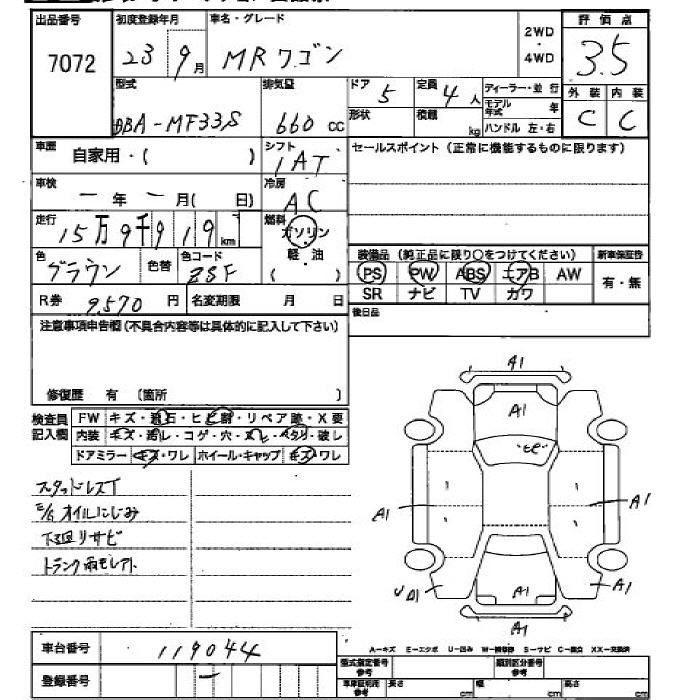 出品番号 初度登録年月 車名・グレード 2WD・4WD 評価点
7072 23 9月 MRワゴン 3.5
型式 排気量 ドア 5 定員 4人 ディーラー・並行 外装 内装
DBA-MF33S 660cc 形状 積載 kg モデル年式 年 C C
ハンドル 左・右
車歴 自家用・( ) シフト 1AT セールスポイント(正常に機能するものに限ります)
車検 一年一月( 日) 冷房 AC
走行 15万9千919km 燃料 ガソリン
軽油
( )
色 ブラウン 色替 色コード ZSF 装備品(純正品に限り○をつけてください) 新車保証書
PS PW ABS エアB AW 有・無
R券 9.570円 名変期限 月 日 SR ナビ TV カワ
注意事項申告欄(不具合内容等は具体的に記入して下さい) 後日品
修復歴 有 (箇所 )
検査員記入欄 FW キズ・飛石・ヒビ割・リペア跡・X要
内装 キズ・汚レ・コゲ・穴・スレ・ヘタリ・破レ
ドアミラー キズ・ワレ ホイール・キャップ キズ・ワレ
スタッドレスT
E/G オイルにじみ
下回リサビ
トランク雨モレアト
A1
A1
ヒビ
A1 A1
A1
U A1 A1
A1
A-キズ E-エクボ U-凹み W-補修跡 S-サビ C-腐食 XX-交換済
車台番号 119044
登録番号 一
型式指定番号 参考 類別区分番号 参考
車庫証明用 参考 長さ cm 幅 cm 高さ cm